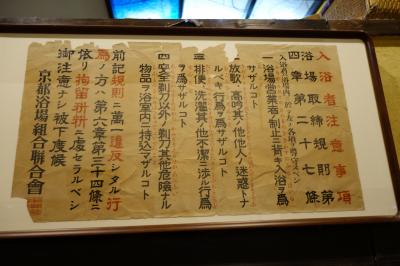 入浴者注意事項
浴場取締規則第
四章第二十七條
入浴者ハ浴場内ニ於テ左ノ各項ヲ遵守スベシ
一、浴場営業者ノ制止ニ背キ入浴ヲ爲
サザルコト
二、放歌、高吟其ノ他他人ノ迷惑トナ
ルベキ行爲ヲ爲サザルコト
三、排便、洗濯其ノ他不潔ニ渉ル行爲
ヲ爲サザルコト
四、安全剃刀以外ノ剃刀其ノ他危險ナル
物品ヲ浴室内ニ持込マザルコト
前記規則ニ萬一違反シタル行
爲ノ方ハ第六章第三十四條ニ
依リ拘留科料ニ處セラルベシ
御注意ナシ被下度候
京都浴場組合聯合會